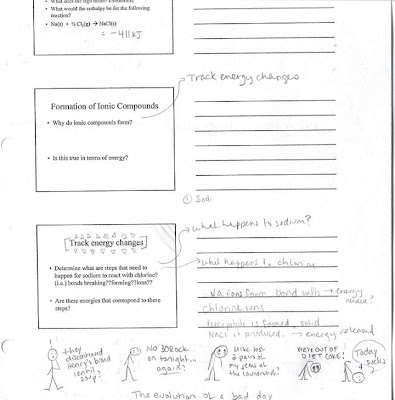 • What would the enthalpy be for the following
reaction?
• Na(s) + ½ Cl₂(g) → NaCl(s)
= -411 kJ
Track energy changes
Formation of Ionic Compounds
• Why do ionic compounds form?
• Is this true in terms of energy?
① Sodi
what happens to sodium?
Track energy changes
• Determine what are steps that need to
happen for sodium to react with chlorine?
(i.e.) bonds breaking??forming??ions??
what happens to chlorine
• Are there energies that correspond to these
steps?
Na ions form bond with → energy
needed?
chlorine ions
is formed, solid
NaCl is produced. → energy released
they
discontinued
Henry's
lentil
soup!
NO 30 Rock
on tonight...
again?
Mike lost
2 pairs of
my jeans at
the laundromat!
WE'RE OUT OF
DIET COKE!
Today
sucks
The evolution of a bad day